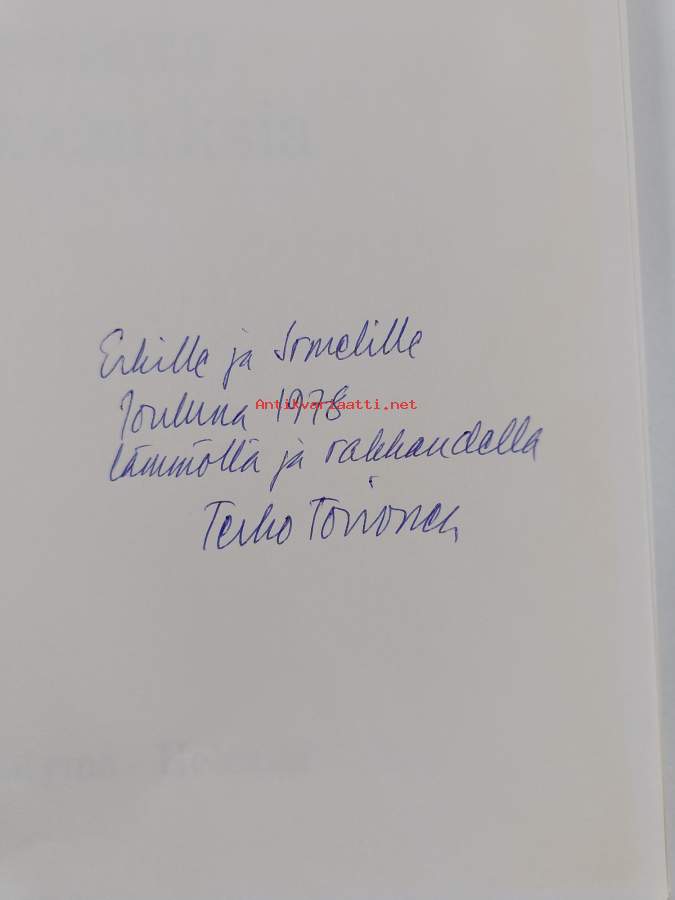 Erkille ja Sometille
Jouluna 1978
Antikvariaatti.net
lämmöllä ja rakkaudella
Terho Toivonen